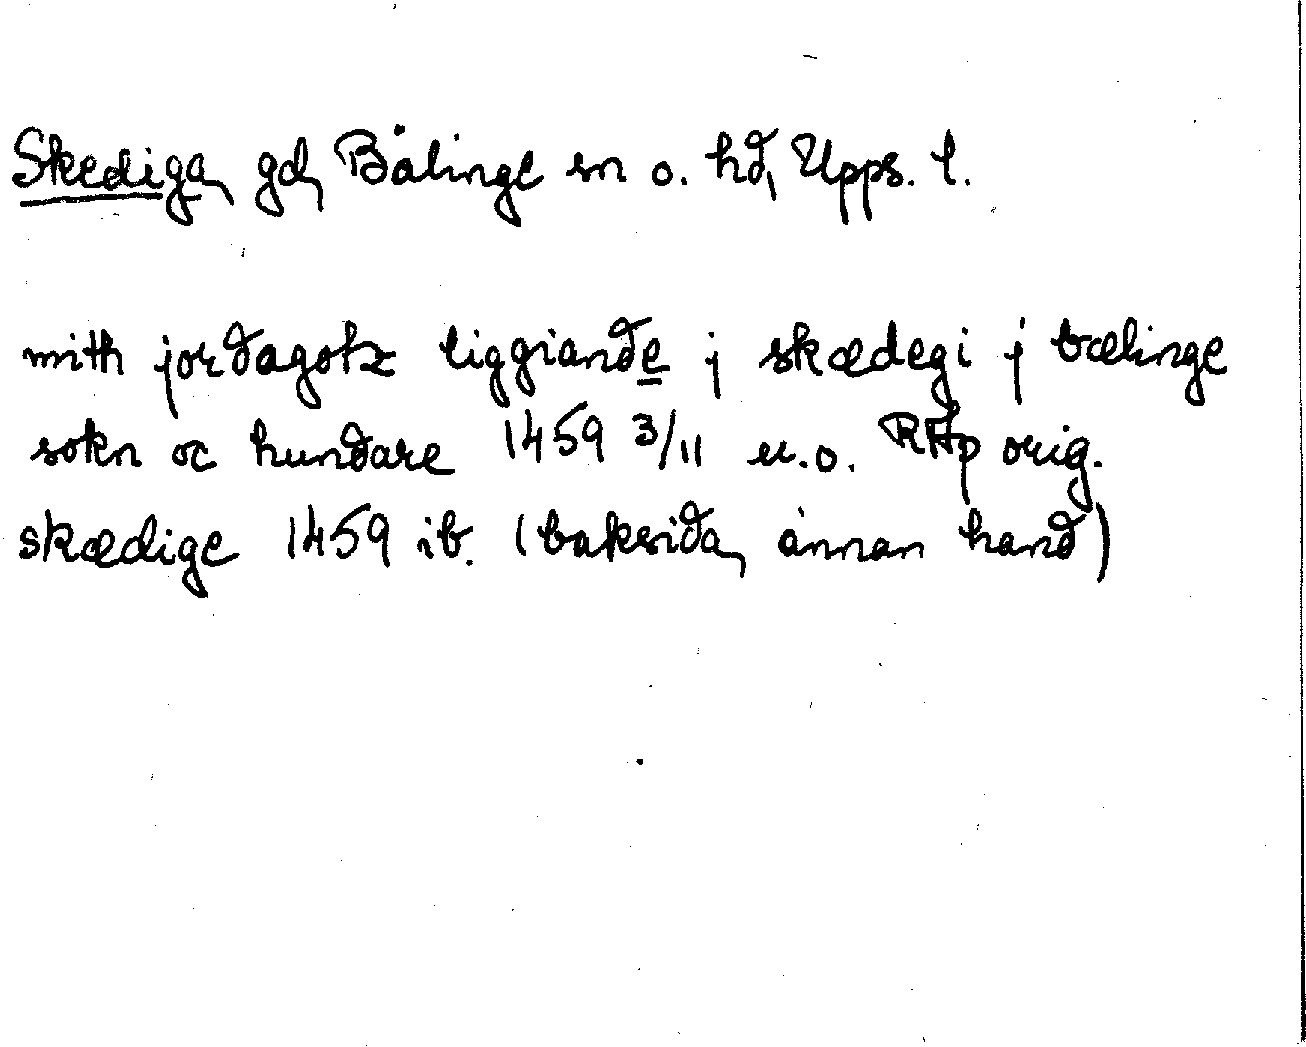 Skediga, gd, Bälinge sn o. hd, Upps. l.
mith jordagotz liggiande j skædegi j bælinge
sokn oc hundare 1459 3/11 u.o. RAp orig.
skædige 1459 ib. (baksida, annan hand)